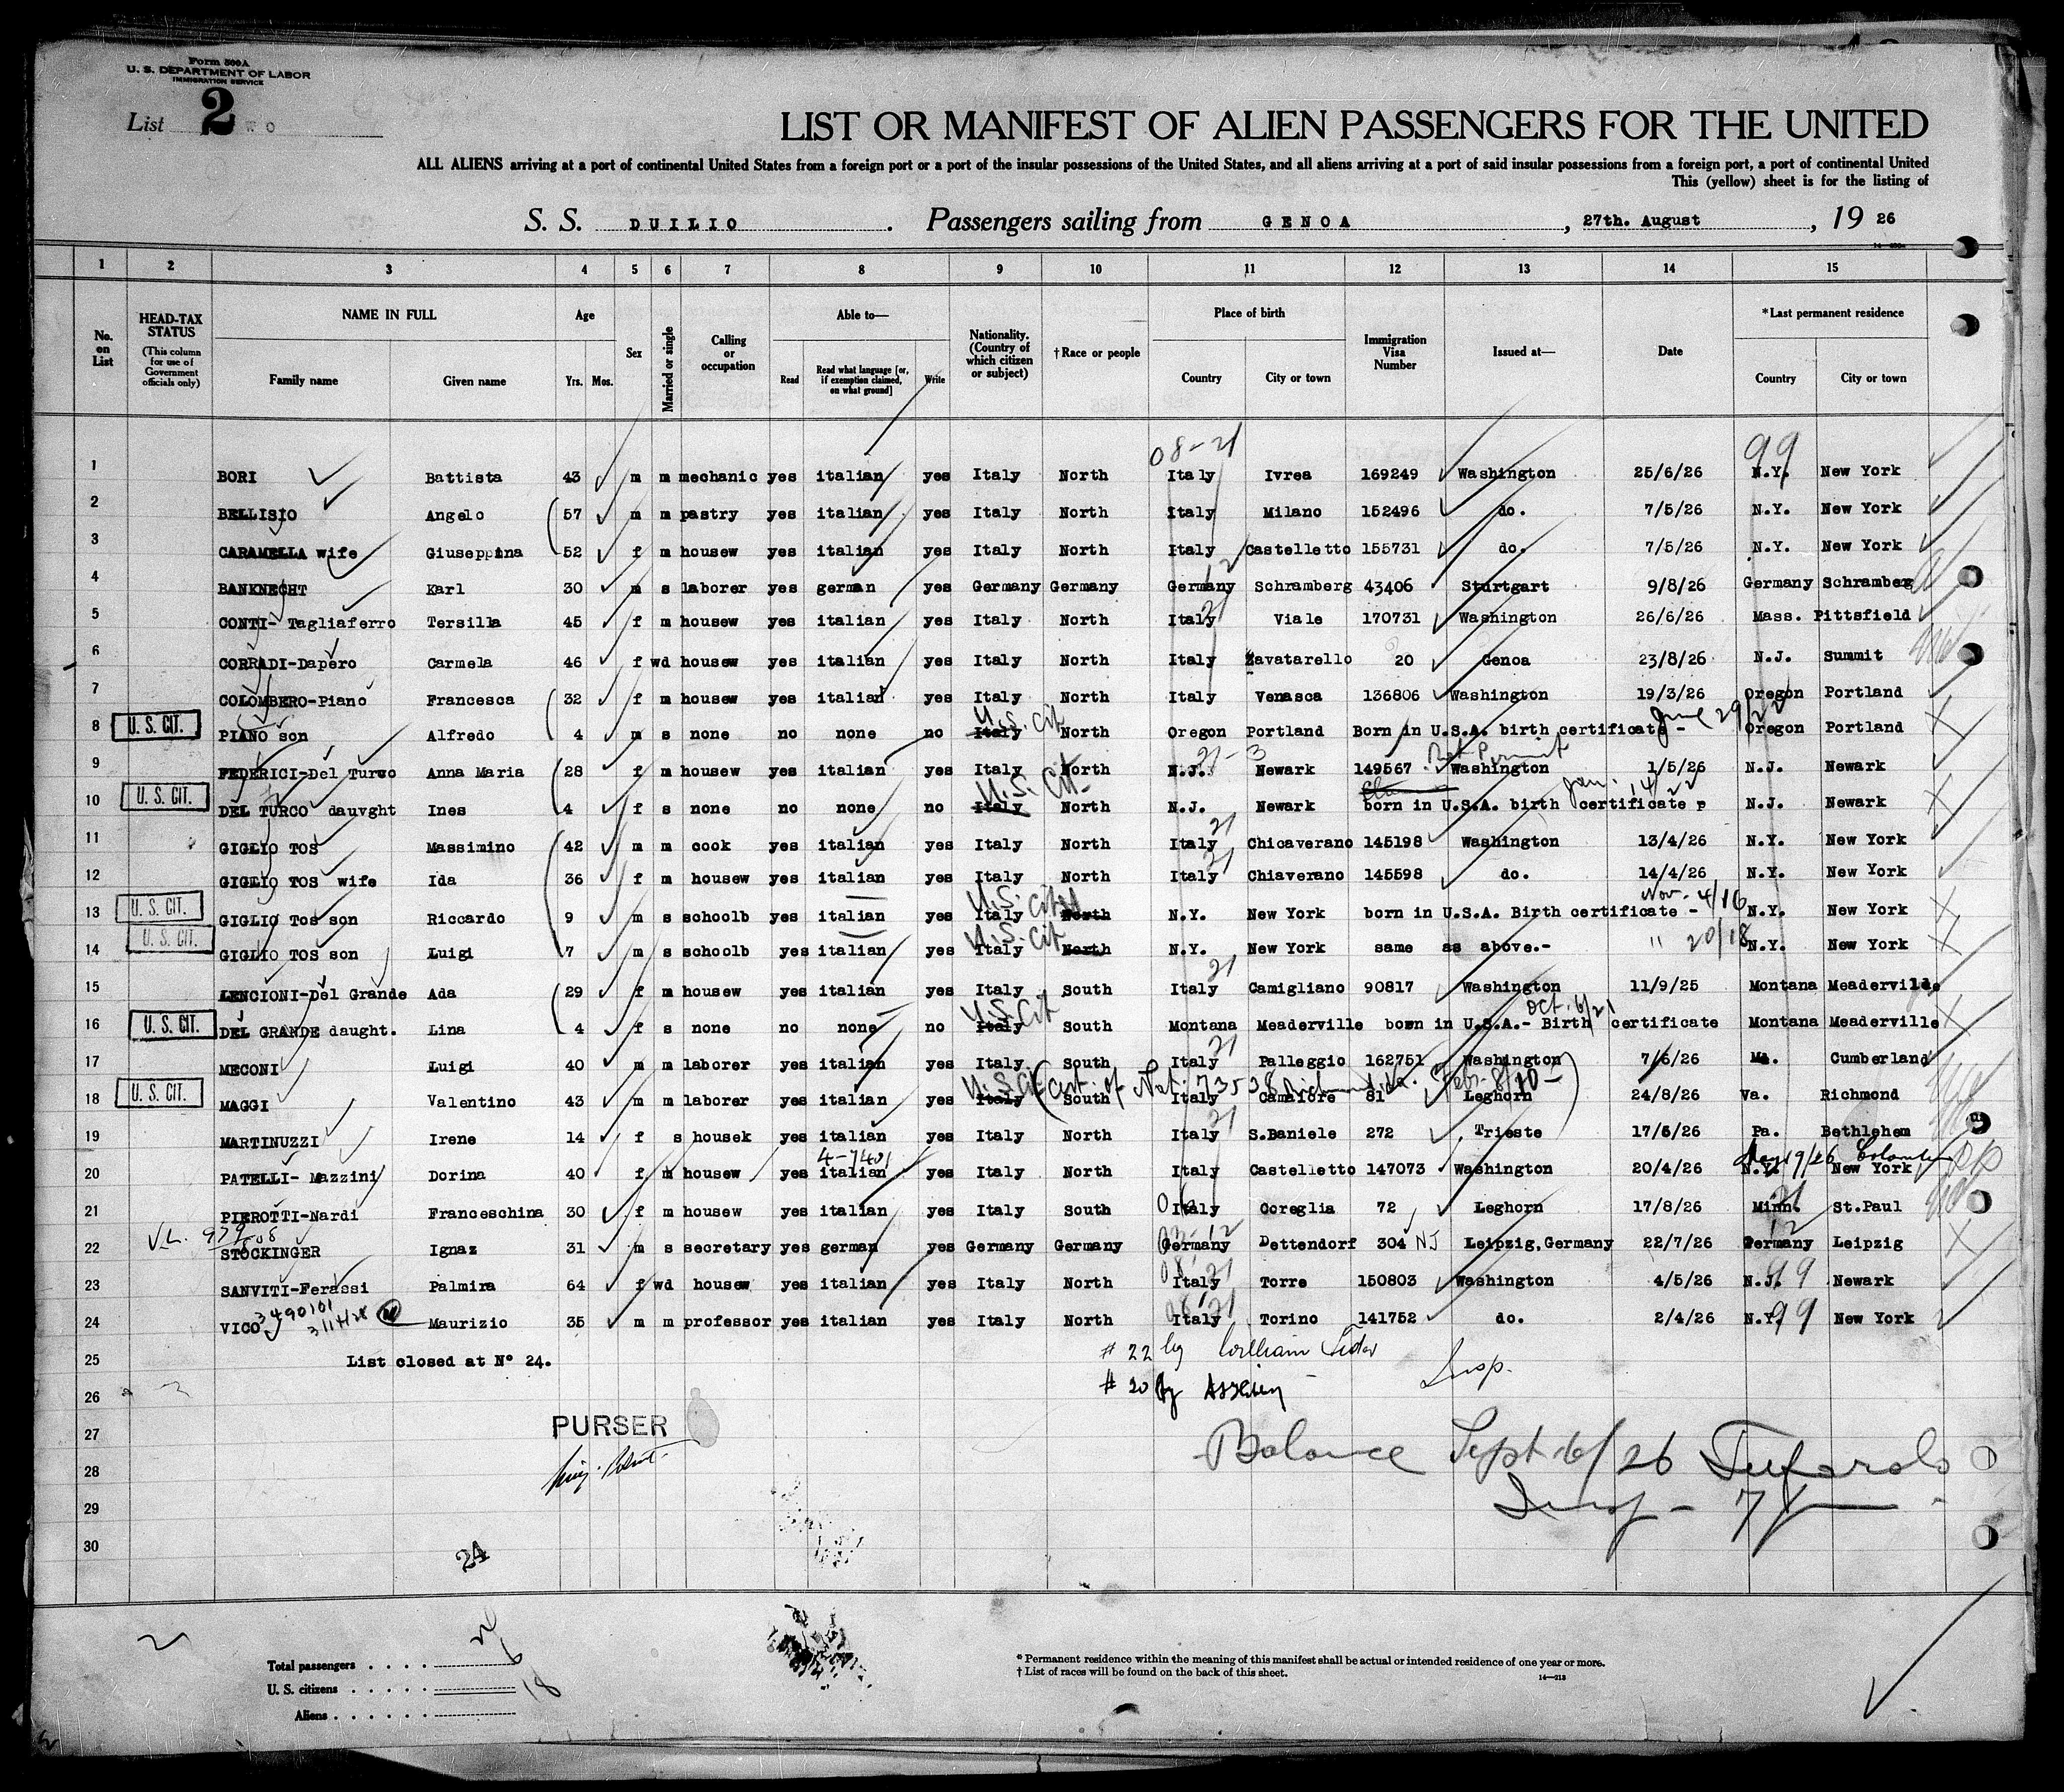 Form 500A
U. S. DEPARTMENT OF LABOR
IMMIGRATION SERVICE
List 2 W O
LIST OR MANIFEST OF ALIEN PASSENGERS FOR THE UNITED
ALL ALIENS arriving at a port of continental United States from a foreign port or a port of the insular possessions of the United States, and all aliens arriving at a port of said insular possessions from a foreign port, a port of continental United
This (yellow) sheet is for the listing of
S. S. DUILIO. Passengers sailing from GENOA, 27th. August, 19 26
1 2 3 4 5 6 7 8 9 10 11 12 13 14 15
No. on List
HEAD-TAX STATUS
(This column for use of Government officials only)
NAME IN FULL
Family name
Given name
Age
Yrs. Mos.
Sex
Married or single
Calling or occupation
Able to—
Read
Read what language [or, if exemption claimed, on what ground]
Write
Nationality. (Country of which citizen or subject)
†Race or people
Place of birth
Country
City or town
Immigration Visa Number
Issued at—
Date
*Last permanent residence
Country
City or town
08-21 99
1 BORI Battista 43 m m mechanic yes italian yes Italy North Italy Ivrea 169249 Washington 25/6/26 N.Y. New York
2 BELLISIO Angelo 57 m m pastry yes italian yes Italy North Italy Milano 152496 do. 7/5/26 N.Y. New York
3 CARAMELLA wife Giuseppina 52 f m housew yes italian yes Italy North Italy Castelletto 155731 do. 7/5/26 N.Y. New York
4 BANKNECHT Karl 30 m s laborer yes german yes Germany Germany Germany Schramberg 43406 Sturtgart 9/8/26 Germany Schramberg
5 CONTI- Tagliaferro Tersilla 45 f m housew yes italian yes Italy North Italy Viale 170731 Washington 26/6/26 Mass. Pittsfield
6 CORRADI-Dapero Carmela 46 f wd housew yes italian yes Italy North Italy Zavatarello 20 Genoa 23/8/26 N.J. Summit
7 COLOMBERO-Piano Francesca 32 f m housew yes italian yes Italy North Italy Venasca 136806 Washington 19/3/26 Oregon Portland
U.S. Cit June 29/22
8 U. S. CIT. PIANO son Alfredo 4 m s none no none no Italy North Oregon Portland Born in U.S.A. birth certificate - Oregon Portland
21-3 Ret Permit
9 FEDERICI-Del Turco Anna Maria 28 f m housew yes italian yes Italy North N.J. Newark 149567 Washington 1/5/26 N.J. Newark
U.S. Cit Jan. 14/22
10 U. S. CIT. DEL TURCO dauvght Ines 4 f s none no none no Italy North N.J. Newark born in U.S.A. birth certificate p N.J. Newark
21
11 GIGLIO TOS Massimino 42 m m cook yes italian yes Italy North Italy Chicaverano 145198 Washington 13/4/26 N.Y. New York
21
12 GIGLIO TOS wife Ida 36 f m housew yes italian yes Italy North Italy Chiaverano 145598 do. 14/4/26 N.Y. New York
U.S. Cit Nov. 4/16
13 U. S. CIT. GIGLIO Tos son Riccardo 9 m s schoolb yes italian yes Italy North N.Y. New York born in U.S.A. Birth certificate - N.Y. New York
U.S. Cit " 20/18
14 U. S. CIT. GIGLIO TOS son Luigi 7 m s schoolb yes italian yes Italy North N.Y. New York same as above.- N.Y. New York
21
15 LENCIONI-Del Grande Ada 29 f m housew yes italian yes Italy South Italy Camigliano 90817 Washington 11/9/25 Montana Meaderville
U.S. Cit Oct. 6/21
16 U. S. CIT. DEL GRANDE daught. Lina 4 f s none no none no Italy South Montana Meaderville born in U.S.A.- Birth certificate Montana Meaderville
21
17 MECONI Luigi 40 m m laborer yes italian yes Italy South Italy Palleggio 162751 Washington 7/6/26 Md. Cumberland
U.S. Cit (Cert. of Nat. 73538 Richmond, Va. Febr. 8/10-)
18 U. S. CIT. MAGGI Valentino 43 m m laborer yes italian yes Italy South Italy Camaiore 81 Leghorn 24/8/26 Va. Richmond
21
19 MARTINUZZI Irene 14 f s housek yes italian yes Italy North Italy S.Daniele 272 Trieste 17/6/26 Pa. Bethlehem
4-7401 Aug 9/26
20 PATELLI- Mazzini Dorina 40 f m housew yes italian yes Italy North Italy Castelletto 147073 Washington 20/4/26 N.Y. New York
21 PIEROTTI-Nardi Franceschina 30 f m housew yes italian yes Italy South Italy Coreglia 72 Leghorn 17/8/26 Minn. St.Paul
V.L.
22 STOCKINGER Ignaz 31 m s secretary yes german yes Germany Germany Germany Dettendorf 304 NJ Leipzig,Germany 22/7/26 Germany Leipzig
23 SANVITI-Ferassi Palmira 64 f wd housew yes italian yes Italy North Italy Torre 150803 Washington 4/5/26 N.J. 99 Newark
24 VICO Maurizio 35 m m professor yes italian yes Italy North Italy Torino 141752 do. 2/4/26 N.Y. 99 New York
3490101
25 List closed at N° 24. # 22 by William Insp.
26 # 20 by
PURSER
27 Balance Sept 6/26
28
29 Insp -
30
24
Total passengers
U. S. citizens
Aliens
18
* Permanent residence within the meaning of this manifest shall be actual or intended residence of one year or more.
† List of races will be found on the back of this sheet.
14—213